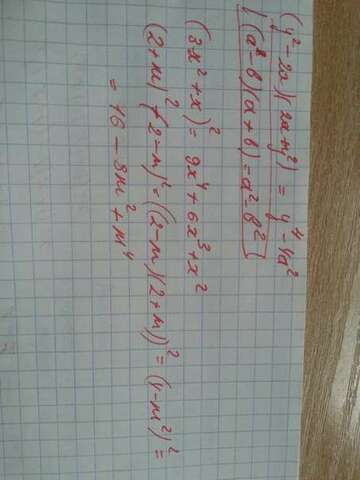 (y²-2a)(2a+y²) = y⁴-4a²
(a-b)(a+b)=a²-b²
(3x²+x)² = 9x⁴+6x³+x²
(2+m)²(2-m)²=((2-m)(2+m))²=(4-m²)²=
= 16-8m²+m⁴